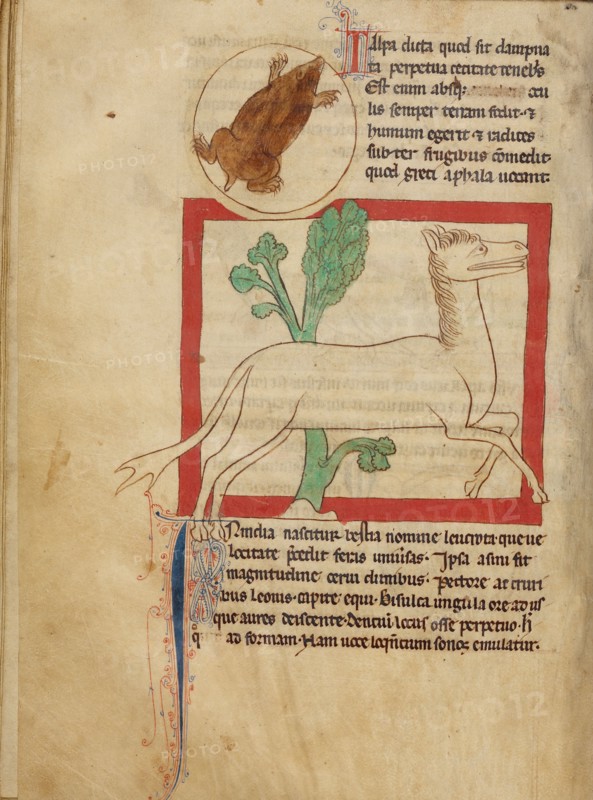 Talpa dicta quod sit dampna
ta perpetua cecitate tenebs
Est enim absq: ocu
lis semper terram fodit · ⁊
humum egerit · ⁊ radices
subter frugibus cōmedit ·
quod greci aphala uocant ·
INindia nascitur bestia nomine leucrota · que ue
locitate p̄cedit feras uniuersas · Ipsa asini fit
magnitudine cerui clunibus · Pectore ac cruri
bus leonis · capite equi · bisulca ungula ore ad us
que aures deiscente · Dentiū locus osse perpetuo · h̄
ad formam · Nam uoce loq̄ntium sonos emulatur ·
PHOTO12